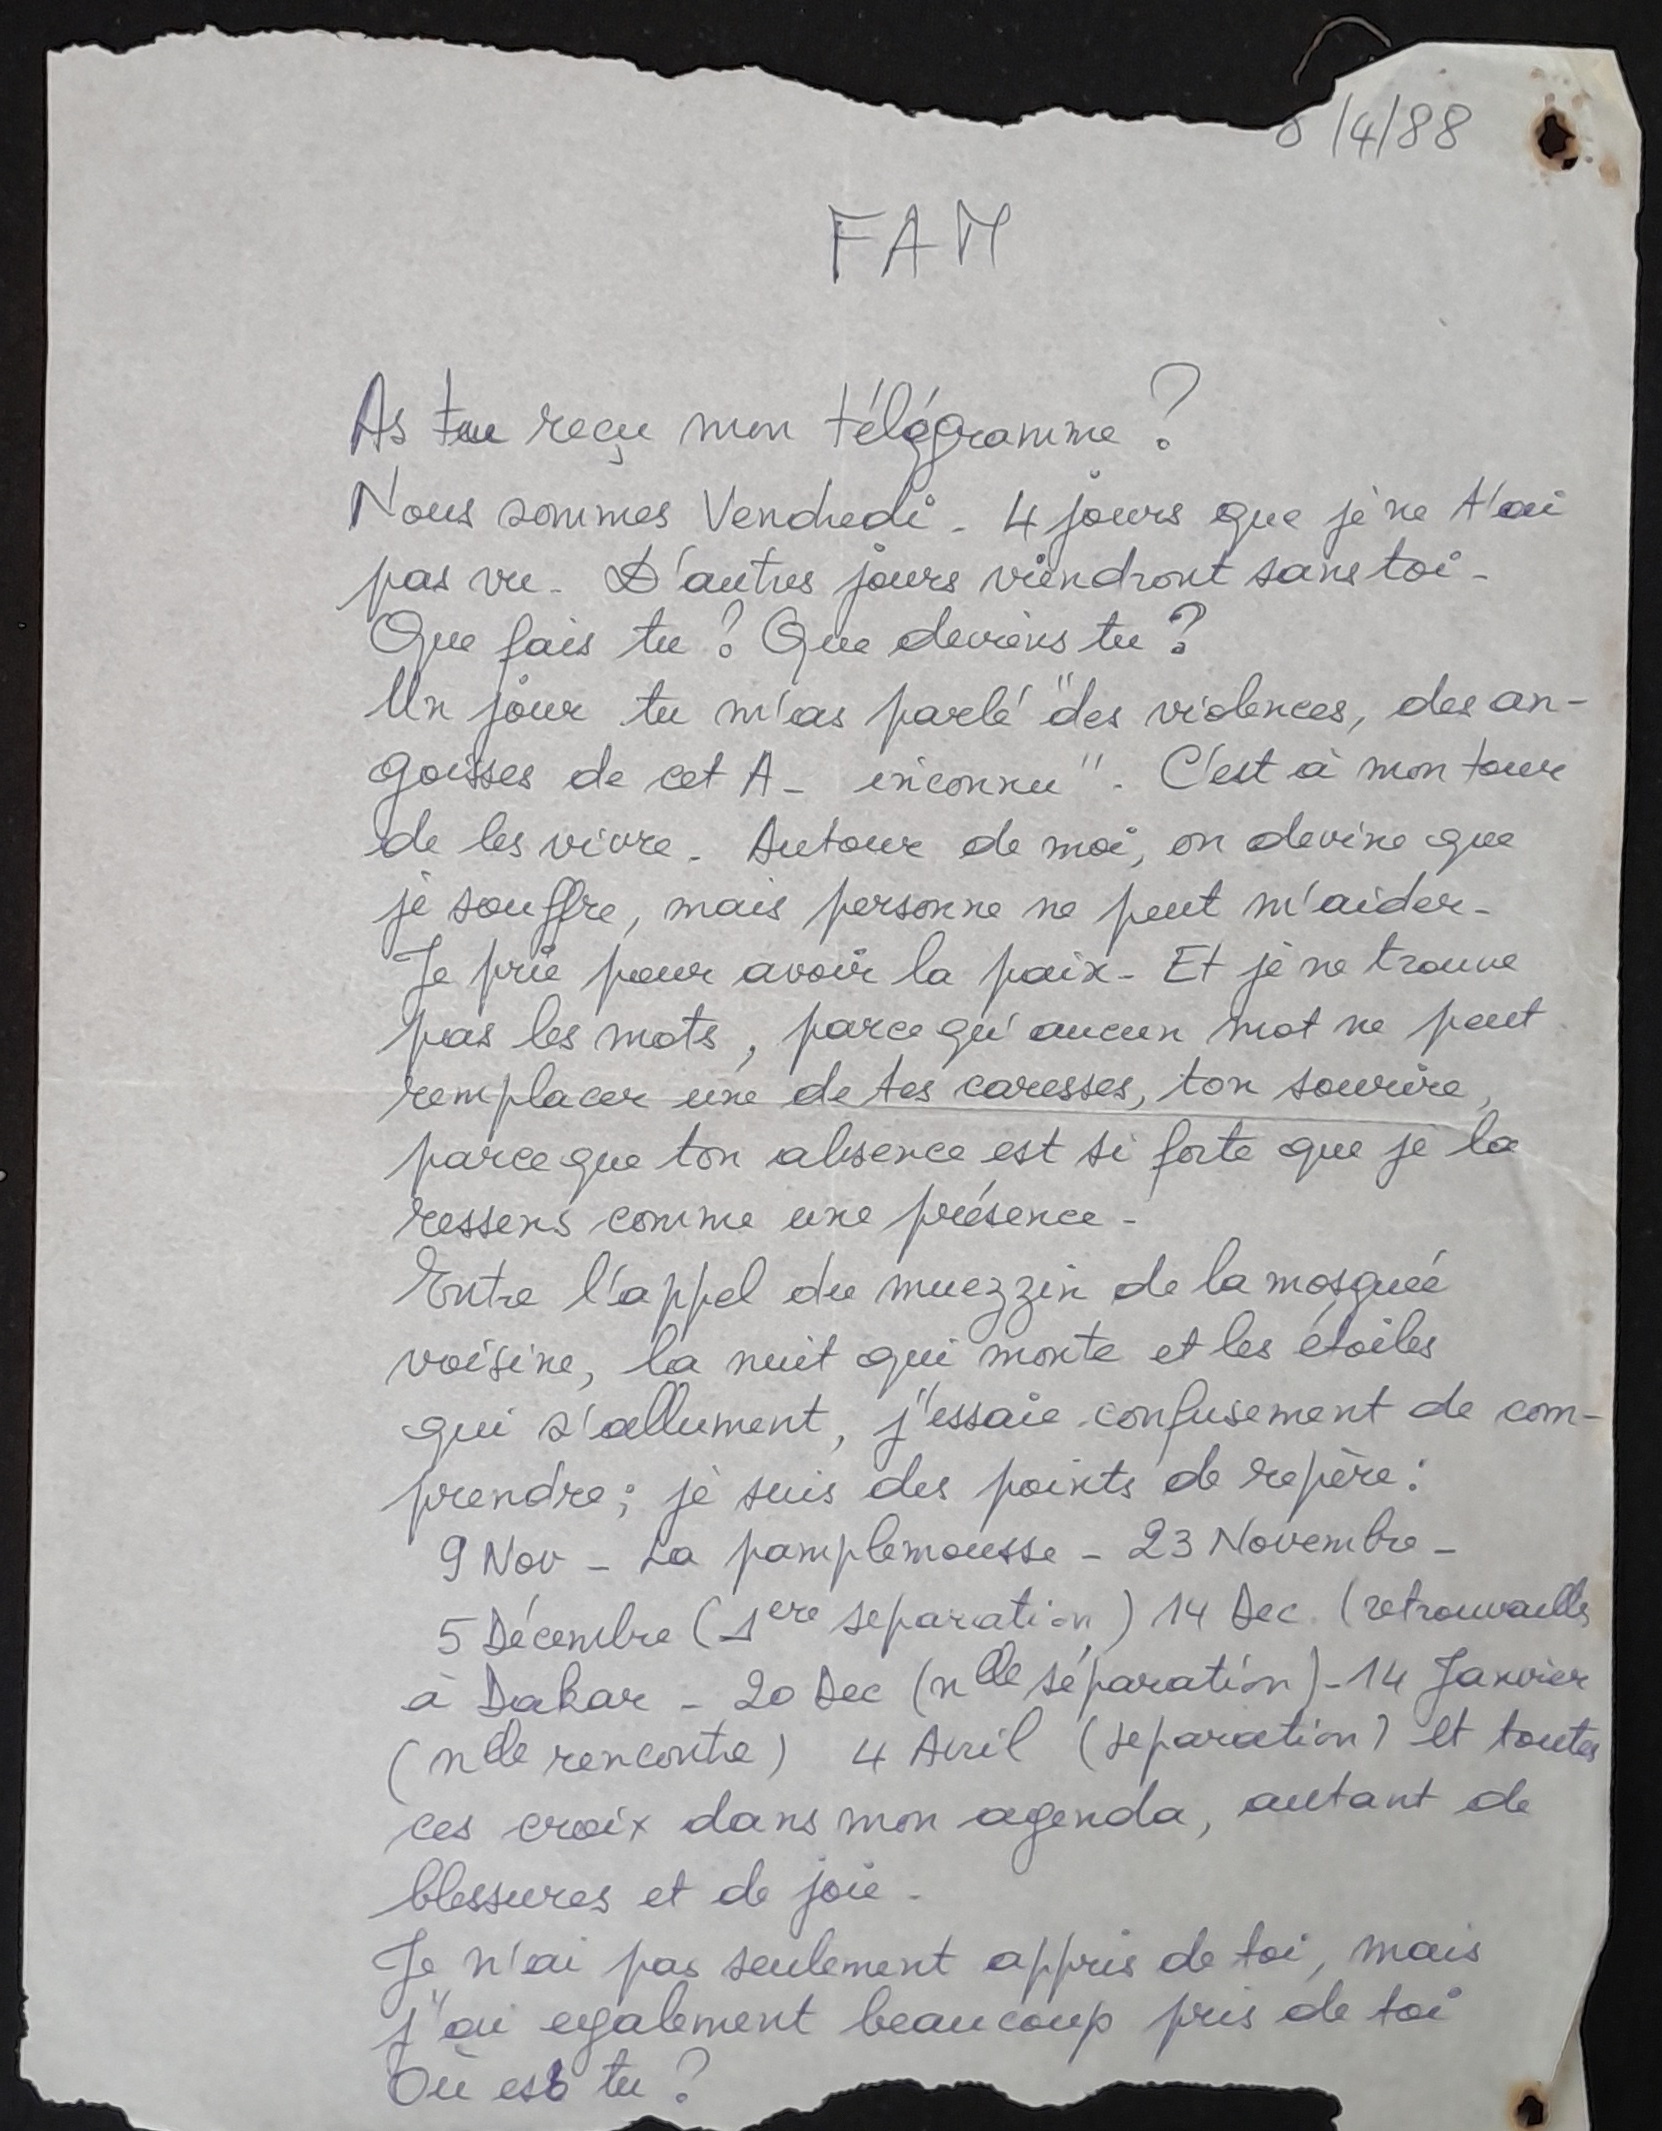 8/4/88
FAM
As tu reçu mon télégramme ?
Nous sommes Vendredi - 4 jours que je ne t'ai
pas vu - D'autres jours viendront sans toi -
Que fais tu ? Que deviens tu ?
Un jour tu m'as parlé "des violences, des an-
goisses de cet A - inconnu" - C'est à mon tour
de les vivre - Autour de moi, on devine que
je souffre, mais personne ne peut m'aider -
Je prie pour avoir la paix - Et je ne trouve
pas les mots, parce qu'aucun mot ne peut
remplacer une de tes caresses, ton sourire,
parce que ton absence est si forte que je la
ressens comme une présence -
Entre l'appel du muezzin de la mosquée
voisine, la nuit qui monte et les étoiles
qui s'allument, j'essaie confusement de com-
prendre ; je suis des points de repère :
9 Nov - La pamplemousse - 23 Novembre -
5 Décembre (1ere separation) 14 Dec (retrouvailles
à Dakar - 20 Dec (nlle séparation) - 14 Janvier
(nlle rencontre) 4 Avril (separation) et toutes
ces croix dans mon agenda, autant de
blessures et de joie -
Je n'ai pas seulement appris de toi, mais
j'ai egalement beaucoup pris de toi
Où es tu ?